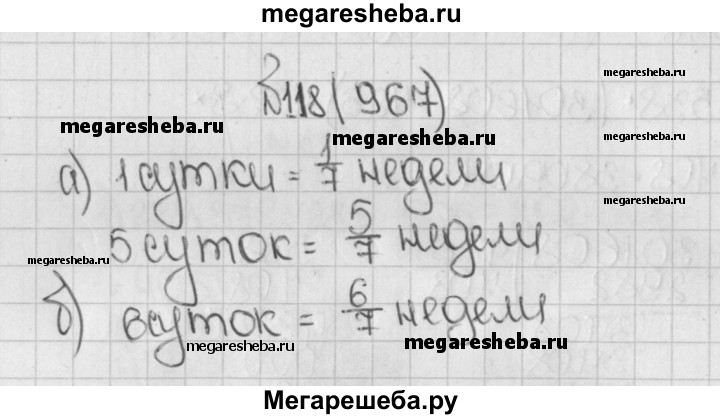 megaresheba.ru
№118(967)
megaresheba.ru
megaresheba.ru
megaresheba.ru
megaresheba.ru
а) 1 сутки = 1/7 недели
5 суток = 5/7 недели
megaresheba.ru
megaresheba.ru
б) 6 суток = 6/7 недели
megaresheba.ru
megaresheba.ru
Мегарешеба.ру